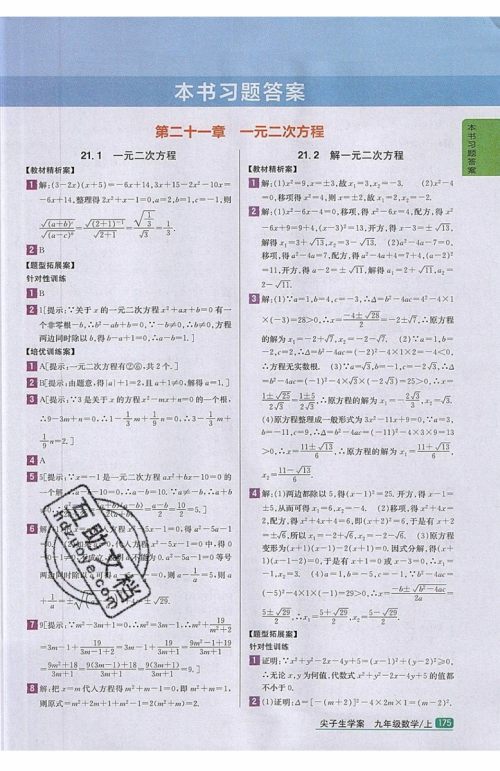 本书习题答案
第二十一章 一元二次方程
21.1 一元二次方程
【教材精析案】
1 解:(3-2x)(x+5)=-6x+14,3x+15-2x²-10x=
-6x+14,整理得2x²+x-1=0,a=2,b=1,c=-1,则
2 B
【题型拓展案】
针对性训练
1 B
2 1[提示:∵关于x的一元二次方程x²+ax+b=0有一
个非零根-b,∴b²-ab+b=0,∵-b≠0,∴b≠0,方程
两边同时除以b,得b-a+1=0,∴a-b=1.]
【培优训练案】
1 A[提示:一元二次方程有②⑥,共2个.]
2 B[提示:由题意,得|a|+1=2,且a+1≠0,解得a=1.]
3 A[提示:∵3是关于x的方程x²-mx+n=0的一个根,
∴9-3m+n=0,∴1-1/3m+1/9n=0,∴3-1/3m+
1/9n=2.]
4 A
5 5[提示:∵x=-1是一元二次方程ax²+bx-10=0的
7 9[提示:∵m²-3m+1=0,∴m²=3m-1,∴m²+19/(m²+2)
=3m-1+19/(3m-1+2)=3m-1+19/(3m+1)=(9m²-1+19)/(3m+1)
=(9m²+18)/(3m+1)=(9(3m-1)+18)/(3m+1)=9(3m+1)/(3m+1)=9.]
8 解:把x=m代入方程得m²+m-1=0,即m²+m=1,
则原式=m²+2m+1+m²-1=2(m²+m)=2.
21.2 解一元二次方程
【教材精析案】
1 解:(1)x²=9,x=±3,故x₁=3,x₂=-3. (2)x²-4
=0,移项得x²=4,则x=±2,故x₁=2,x₂=-2.
2 解:(1)x²-6x-4=0,移项,得x²-6x=4,配方,得x²
-6x+9=9+4,(x-3)²=13,开方,得x-3=±√13,
解得x₁=3+√13,x₂=3-√13. (2)a²-4a-7=0,
移项,得a²-4a=7,配方,得a²-4a+4=7+4,(a-2)²
=11,开方,得a-2=±√11,解得a₁=2+√11,a₂=
2-√11.
3 解:(1)∵a=1,b=4,c=-3,∴Δ=b²-4ac=4²-4×1
×(-3)=28>0,∴x=(-4±√28)/2=-2±√7,∴原方程
的解为x₁=-2+√7,x₂=-2-√7. (2)∵a=1,b=
-2,c=2,∴Δ=b²-4ac=(-2)²-4×1×2=-4<0,
∴方程无实数根. (3)∵a=√3,b=-1,c=-2√3,∴Δ
=b²-4ac=(-1)²-4√3×(-2√3)=25>0,∴x=
(1±√25)/2√3=(1±5)/2√3,∴原方程的解为x₁=-2√3/3,x₂=√3.
(4)原方程整理成一般形式为3x²-11x+9=0,∵a=3,
b=-11,c=9,∴Δ=b²-4ac=(-11)²-4×3×9=13
>0,∴x=(11±√13)/6,∴原方程的解为x₁=(11+√13)/6,
x₂=(11-√13)/6.
4 解:(1)两边都除以5,得(x-1)²=25.开方,得x-1=
±5,从而可得x₁=6,x₂=-4. (2)移项,得x²+4x=
2,配方,得x²+4x+4=6,即(x+2)²=6,于是有x+2
=±√6,所以x₁=-2+√6,x₂=-2-√6. (3)原方程
变形为(x+1)(x-1)-2(x+1)=0.因式分解,得(x+
1)(x-1-2)=0,于是有x+1=0或x-3=0,∴x₁=
-1,x₂=3. (4)a=1,b=-5,c=-1,∵b²-4ac=
(-5)²-4×1×(-1)=29>0,∴x=(-b±√(b²-4ac))/2a=
(5±√29)/2,∴x₁=(5+√29)/2,x₂=(5-√29)/2.
【题型拓展案】
针对性训练
1 证明:∵x²+y²-2x-4y+5=(x-1)²+(y-2)²≥0,
∴无论x,y为何值,代数式x²+y²-2x-4y+5的值都
不小于0.
2 (1)证明:Δ=[-(m+2)]²-4×2m×1=(m-2)².
本书习题答案
尖子生学案 九年级数学/上 175
互助文档
hdzuoye.com